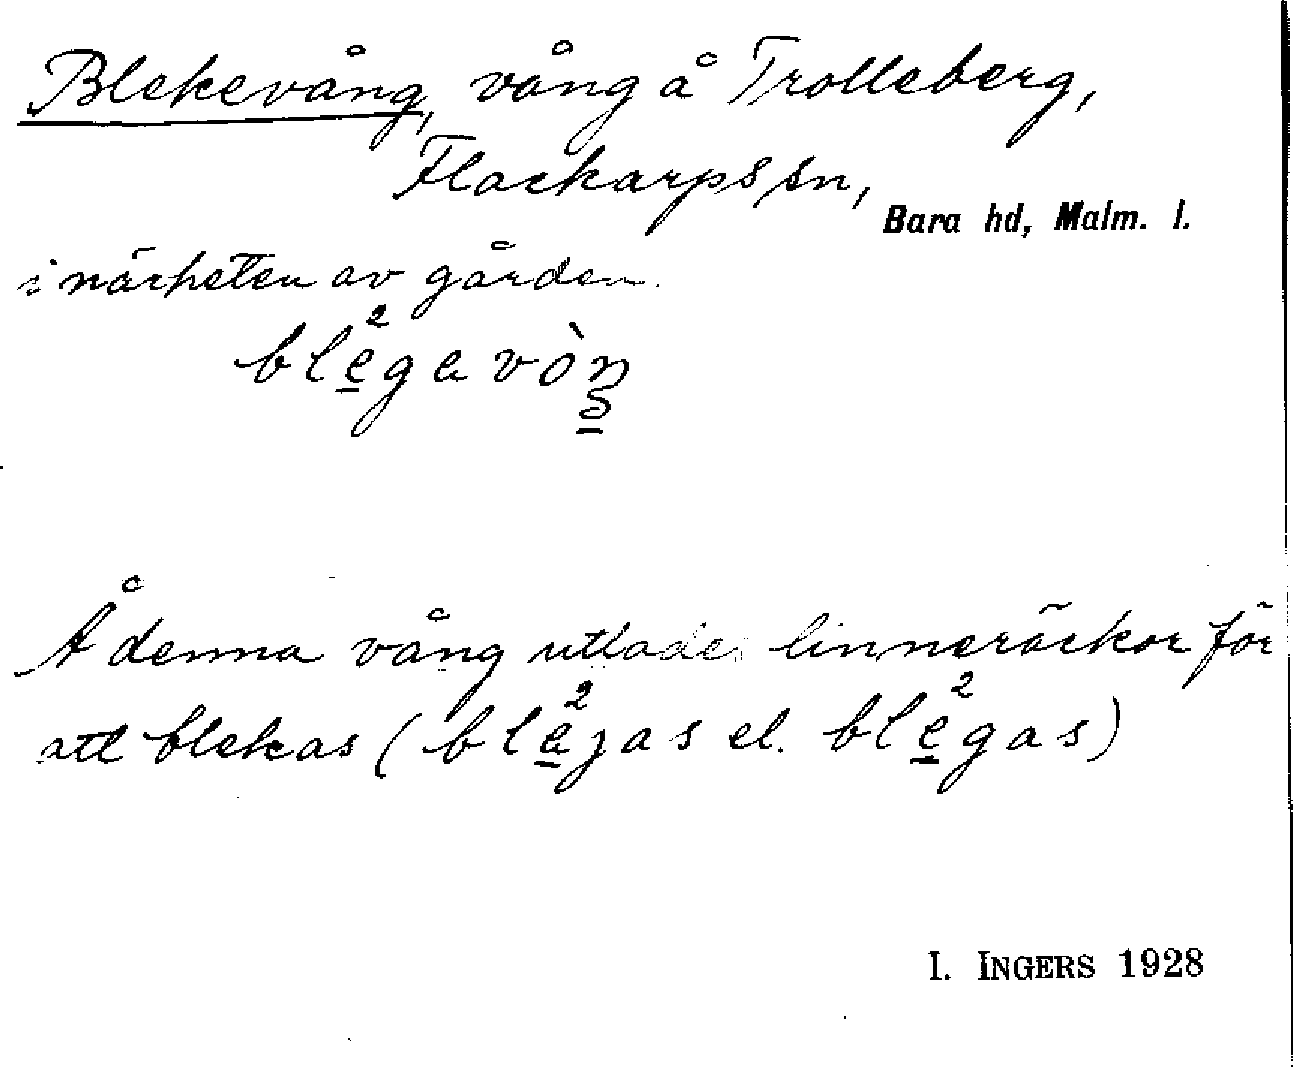 Blekevång, vång å Trolleberg,
Flackarps sn,
Bara hd, Malm. l.
i närheten av gården.
ble̲²gavòn̲
Å denna vång utlades linneräckor för
att blekas (bla̲²jas el. ble̲²gas)
I. INGERS 1928